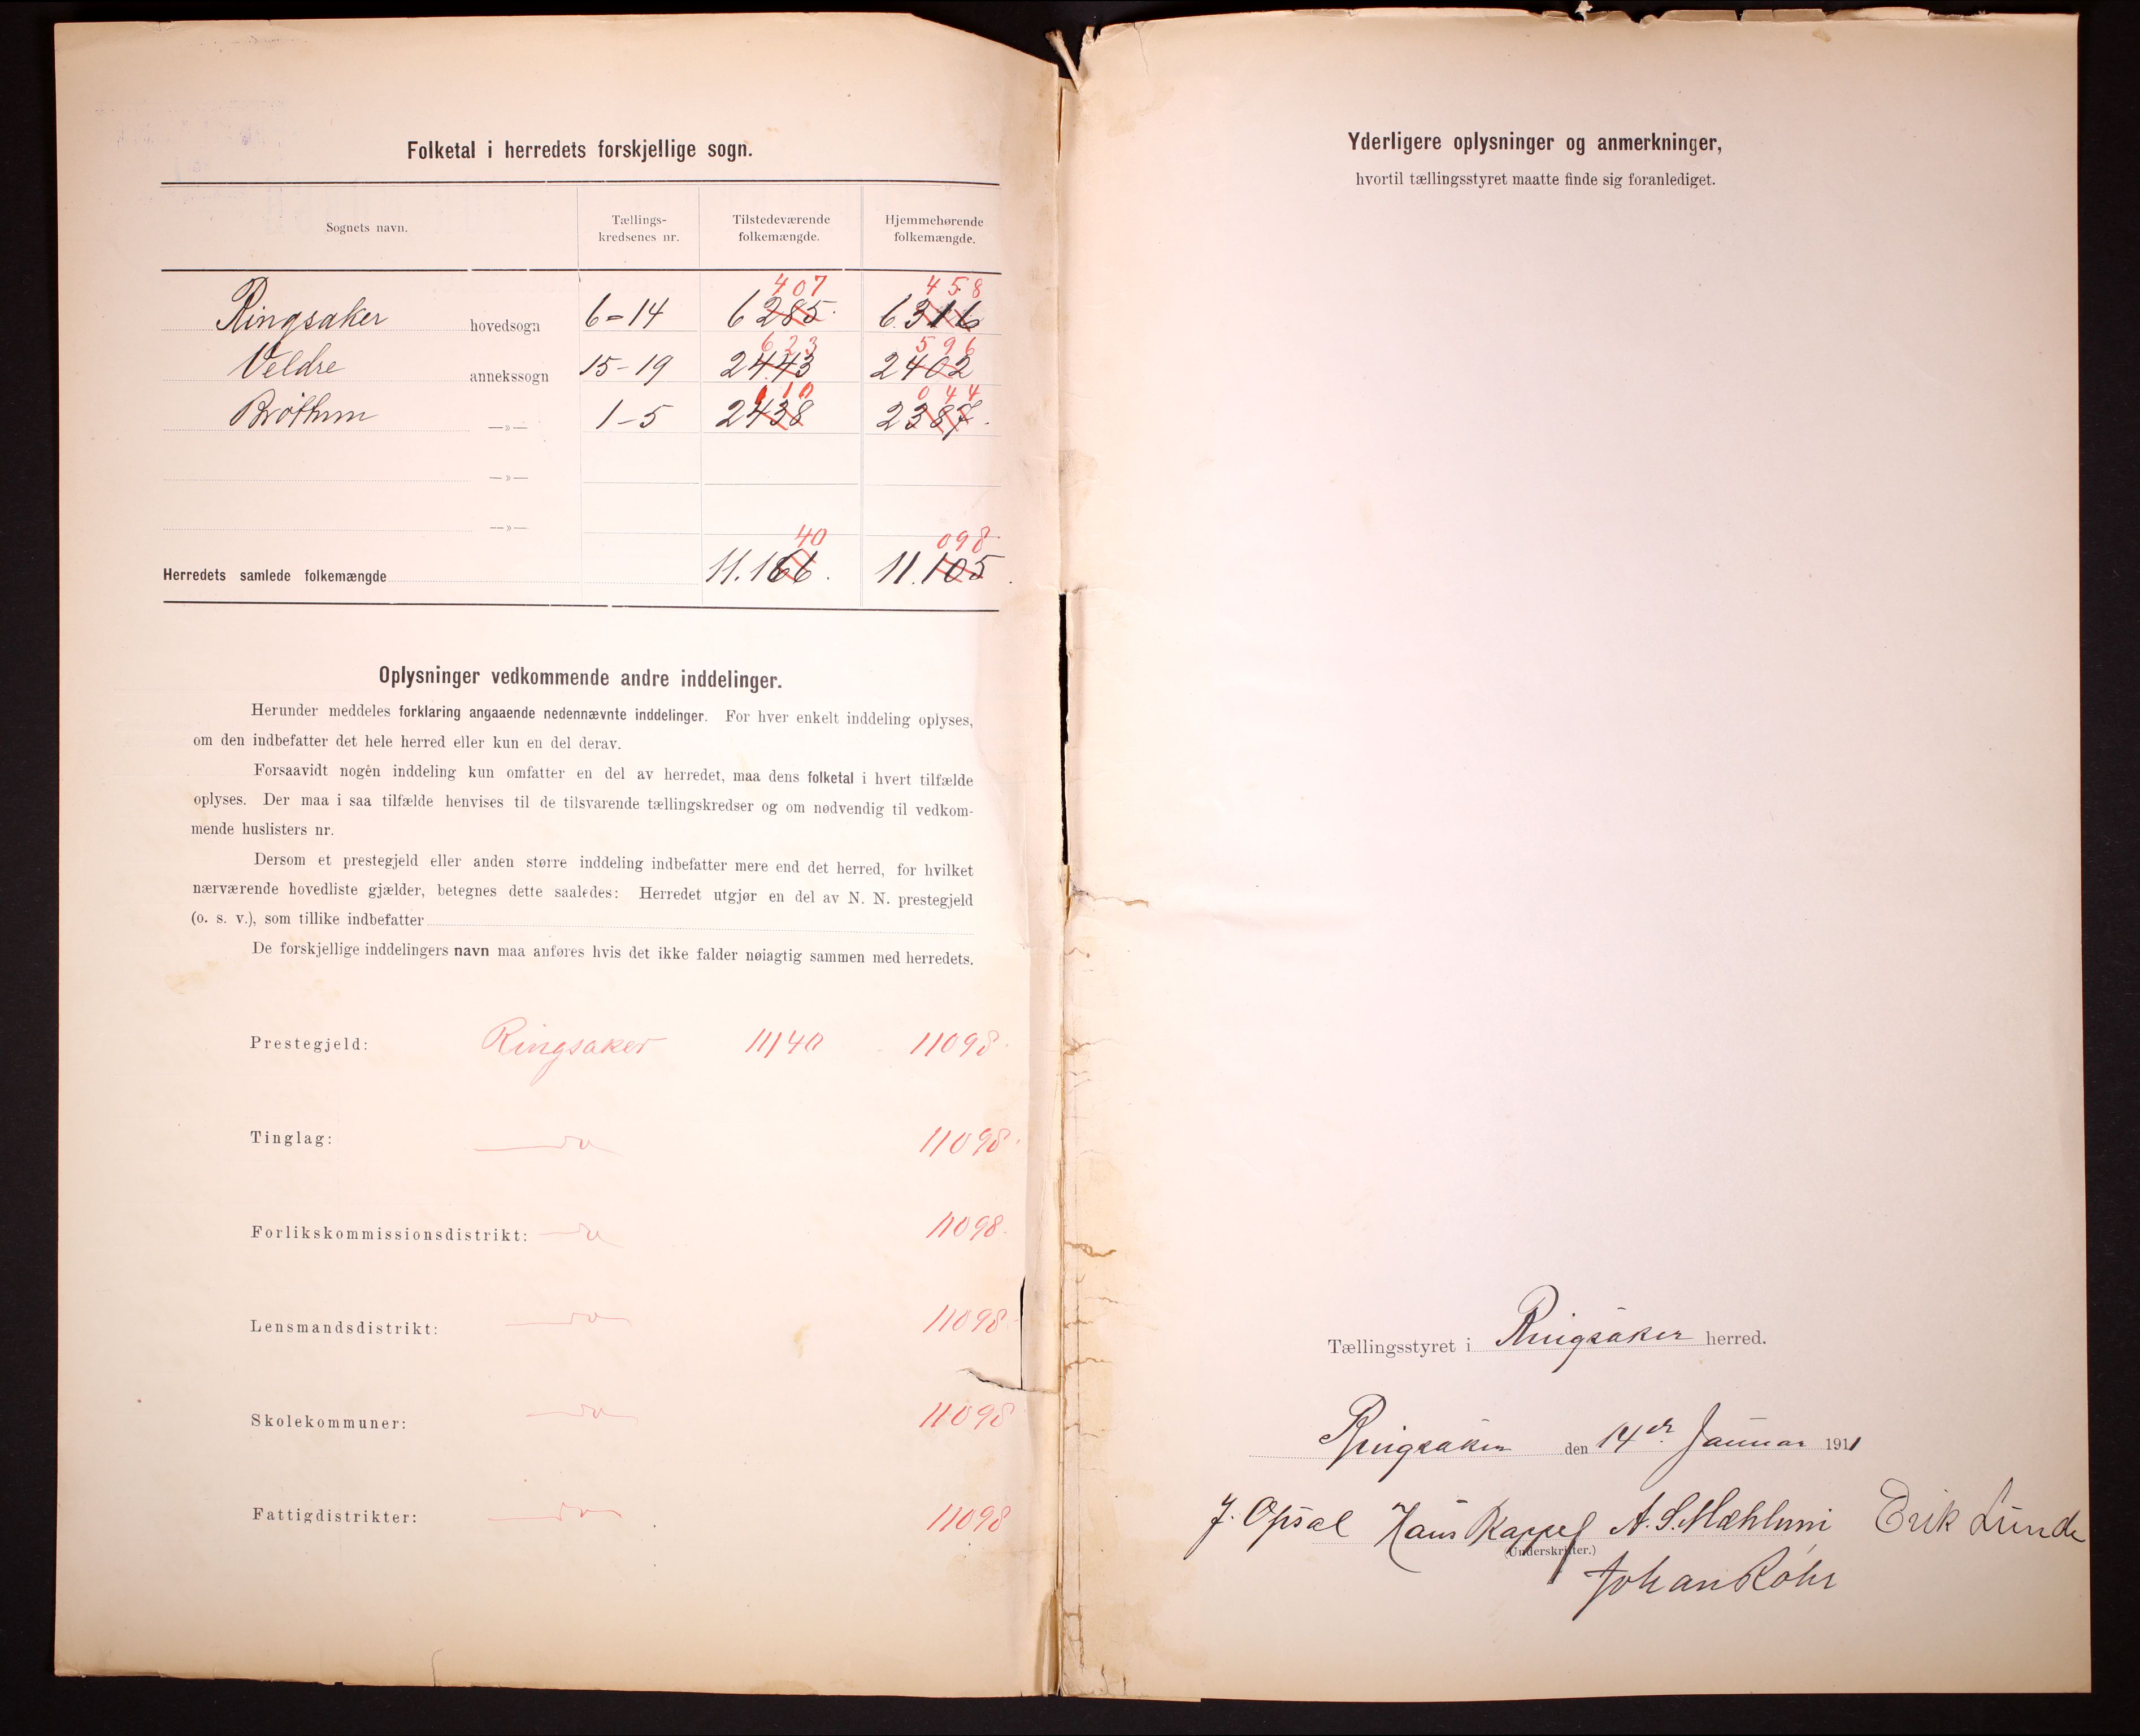 Folketal i herredets forskjellige sogn.
Sognets navn.
Tællings-
kredsenes nr.
Tilstedeværende
folkemængde.
Hjemmehørende
folkemængde.
407 458
Ringsaker hovedsogn 6-14 6285. 6.316
623 596
Veldre annekssogn 15-19 2443 2402
110 044
Brøttum —»— 1-5 2438 2387.
—»—
—»—
40 098
Herredets samlede folkemængde 11.166. 11.105.
Oplysninger vedkommende andre inddelinger.
Herunder meddeles forklaring angaaende nedennævnte inddelinger. For hver enkelt inddeling oplyses,
om den indbefatter det hele herred eller kun en del derav.
Forsaavidt nogen inddeling kun omfatter en del av herredet, maa dens folketal i hvert tilfælde
oplyses. Der maa i saa tilfælde henvises til de tilsvarende tællingskredser og om nødvendig til vedkom-
mende huslisters nr.
Dersom et prestegjeld eller anden større inddeling indbefatter mere end det herred, for hvilket
nærværende hovedliste gjælder, betegnes dette saaledes: Herredet utgjør en del av N. N. prestegjeld
(o. s. v.), som tillike indbefatter
De forskjellige inddelingers navn maa anføres hvis det ikke falder nøiagtig sammen med herredets.
Prestegjeld: Ringsaker 11140 - 11098
Tinglag: — do 11098
Forlikskommissionsdistrikt: — do 11098
Lensmandsdistrikt: — do — 11098
Skolekommuner: — do — 11098
Fattigdistrikter: — do — 11098
Yderligere oplysninger og anmerkninger,
hvortil tællingsstyret maatte finde sig foranlediget.
Tællingsstyret i Ringsaker herred.
Ringsaker den 14de Januar 1911
J. Opsal Hans Kappel A. S. Mæhlum Erik Lunde
(Underskrifter.)
Johan Röhr